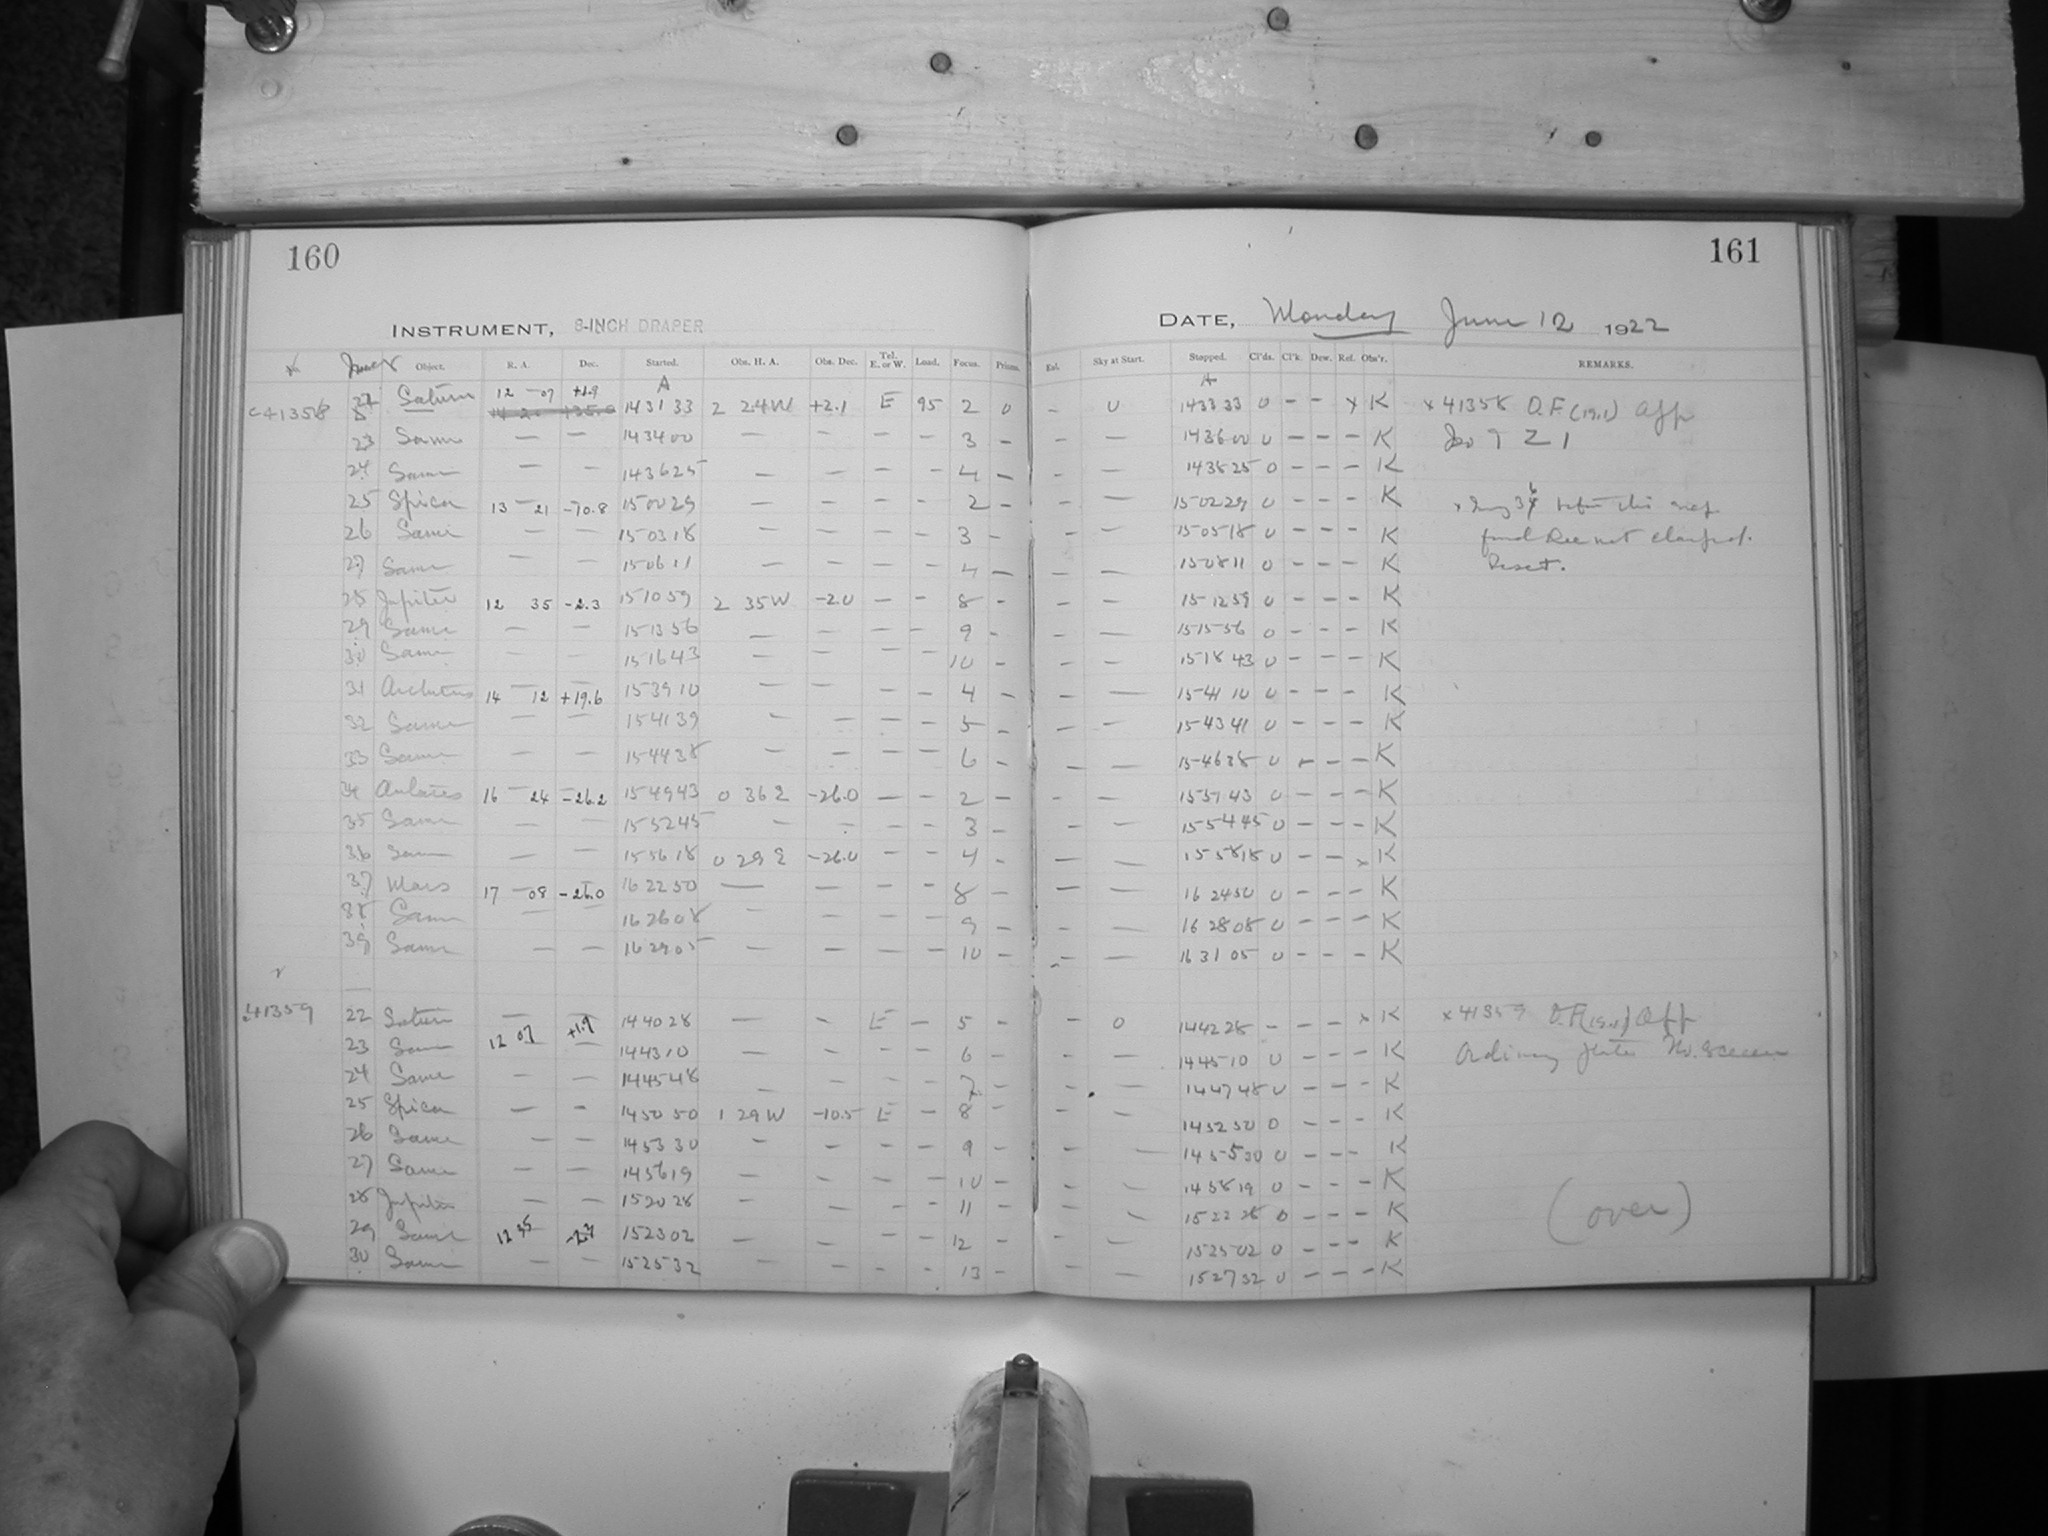 160
161
INSTRUMENT, 8-INCH DRAPER
DATE, Monday June 12 1922
No. Object. R. A. Dec. Started. Obs. H. A. Obs. Dec. Tel. E. or W. Load. Focus. Prisms. Exl. Sky at Start. Stopped. Cl'ds. Cl'k. Dew. Ref. Obs'r. REMARKS.
A A
c41358 Saturn 12 07 +1.9 143133 2 24W +2.1 E 95 2 0 - 0 143333 0 - - x K x 41358 O.F. (19.1) Aff
23 Same — — 143400 — — — — 3 — — — 143600 0 — — — K
24 Same — — 143625 — — — — 4 — — — 143825 0 — — — K
25 Spica 13 21 -10.8 150029 — — — — 2 — — — 150229 0 — — — K
26 Same — — 150318 — — — — 3 — — — 150518 0 — — — K
27 Same — — 150611 — — — — 4 — — — 150811 0 — — — K
28 Jupiter 12 35 -2.3 151059 2 35W -2.0 — — 8 — — — 151259 0 — — — K
29 Same — — 151356 — — — — 9 — — — 151556 0 — — — K
30 Same — — 151643 — — — — 10 — — — 151843 0 — — — K
31 Arcturus 14 12 +19.6 153910 — — — — 4 — — — 154110 0 — — — K
32 Same — — 154139 — — — — 5 — — — 154341 0 — — — K
33 Same — — 154438 — — — — 6 — — — 154638 0 — — — K
34 Antares 16 24 -26.2 154943 0 36E -26.0 — — 2 — — — 155143 0 — — — K
35 Same — — 155245 — — — — 3 — — — 155445 0 — — — K
36 Same — — 155618 0 29E -26.0 — — 4 — — — 155818 0 — — x K
37 Mars 17 08 -26.0 162250 — — — — 8 — — — 162450 0 — — — K
38 Same — — 162608 — — — — 9 — — — 162808 0 — — — K
39 Same — — 162905 — — — — 10 — — — 163105 0 — — — K
41359 22 Saturn 12 07 +1.9 144028 — — E — 5 — — 0 144228 — — — x K x 41359 O.F. Aff
23 Same — — 144310 — — — — 6 — — — 144510 0 — — — K Ordinary No. Screen
24 Same — — 144548 — — — — 7 — — — 144748 0 — — — K
25 Spica — — 145050 1 29W -10.5 E — 8 — — — 145250 0 — — — K
26 Same — — 145330 — — — — 9 — — — 145530 0 — — — K
27 Same — — 145619 — — — — 10 — — — 145819 0 — — — K
28 Jupiter — — 152028 — — — — 11 — — — 152228 0 — — — K (over)
29 Same 12 35 152302 — — — — 12 — — — 152502 0 — — — K
30 Same — — 152532 — — — — 13 — — — 152732 0 — — — K